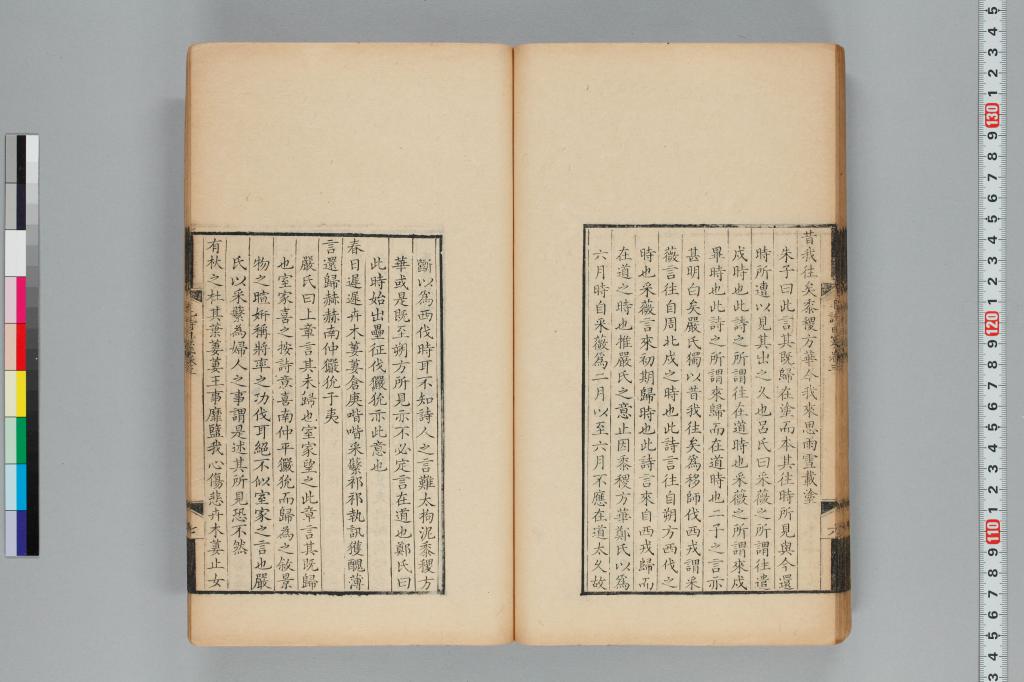 昔我往矣黍稷方華今我來思雨雪載塗
朱子曰此言其既歸在塗而本其往時所見與今還
時所遭以見其出之久也呂氏曰采薇之所謂往遣
戍時也此詩之所謂往在道時也采薇之所謂來戍
畢時也此詩之所謂來歸而在道時也二子之言亦
甚明白矣嚴氏獨以昔我往矣爲移師伐西戎謂采
薇言往自周北戍之時也此詩言往自朔方西伐之
時也采薇言來初期歸時也此詩言來自西戎歸而
在道之時也推嚴氏之意止因黍稷方華鄭氏以爲
六月時自采薇爲二月以至六月不應在道太久故
斷以爲西伐時耳不知詩人之言難太拘泥黍稷方
華或是既至朔方所見亦不必定言在道也鄭氏曰
此時始出壘征伐玁狁亦此意也
春日遲遲卉木萋萋倉庚喈喈采蘩祁祁執訊獲醜薄
言還歸赫赫南仲玁狁于夷
嚴氏曰上章言其未歸也室家望之此章言其既歸
也室家喜之按詩意喜南仲平玁狁而歸為之敘景
物之暄妍稱將率之功伐耳絕不似室家之言也嚴
氏以采蘩為婦人之事謂是述其所見恐不然
有杕之杜其葉萋萋王事靡盬我心傷悲卉木萋止女
六
七
130
120
110